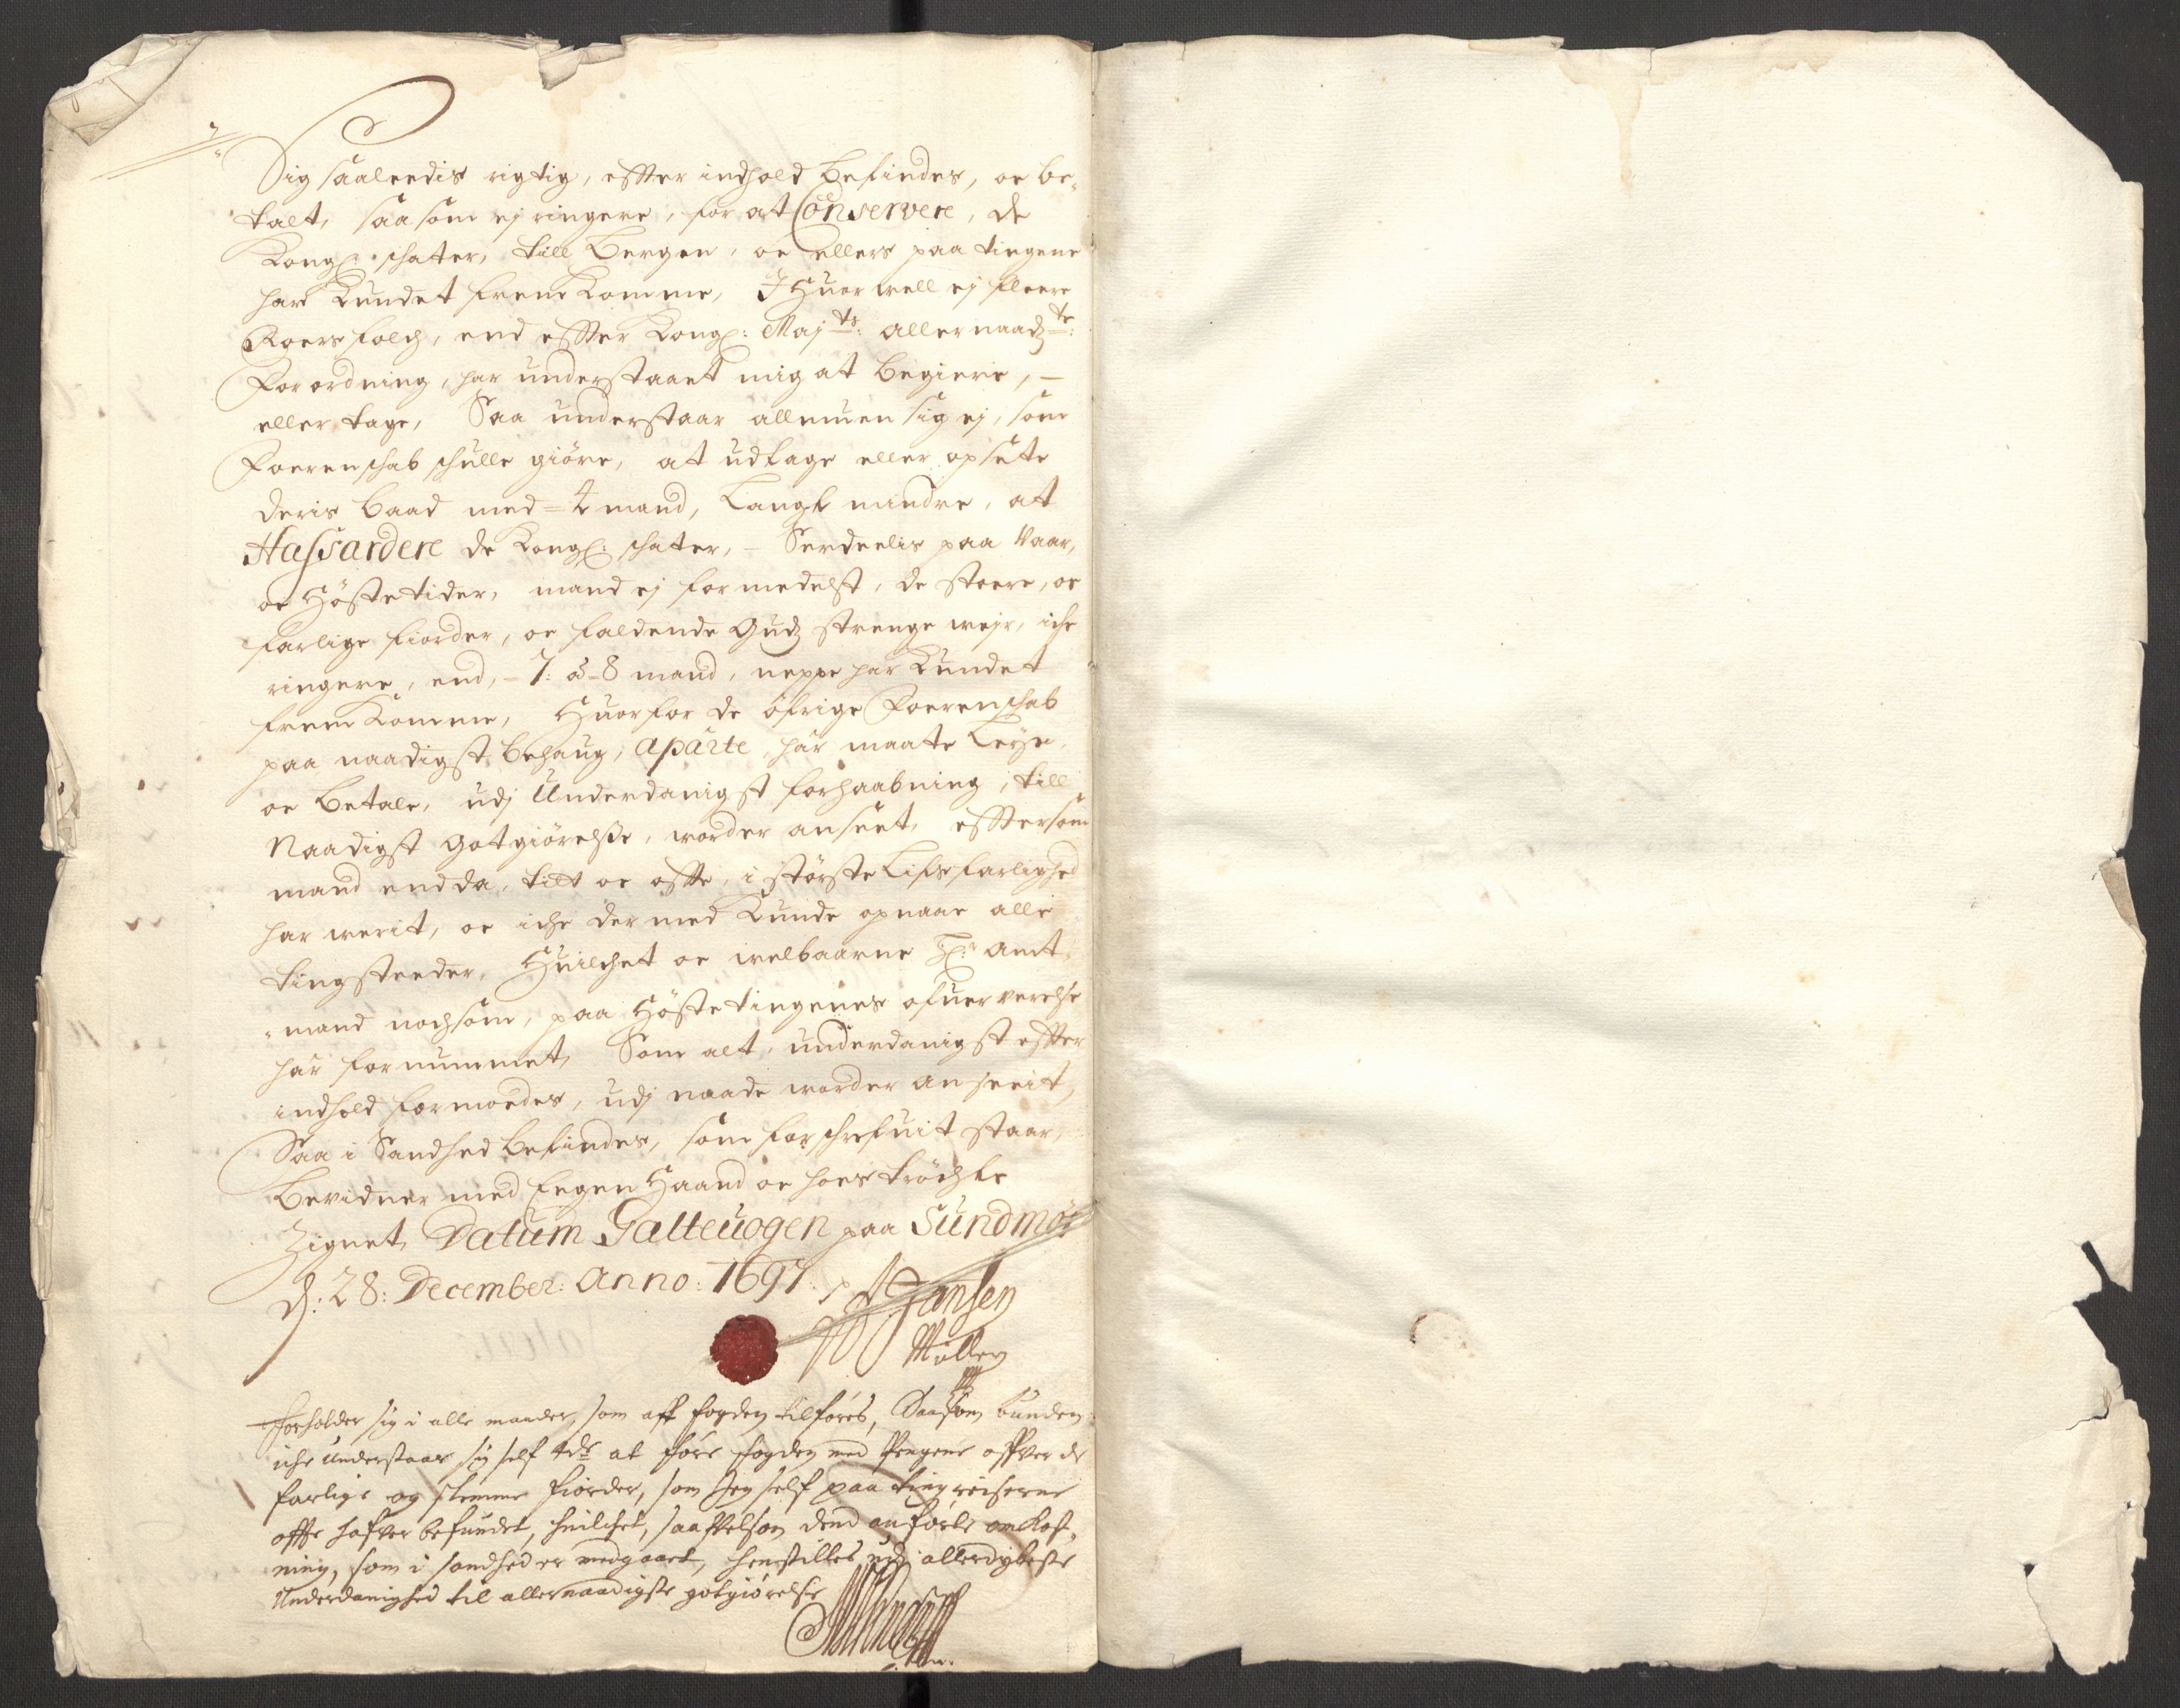 Sig saaleedis rigtig, effter indhold befindes, oc be-
talt, saasom ej ringere, for at Conservere, de
Kongl: schater, till Bergen, oc ellers paa tingene
har kundet frem komme, I Huor well ej fleere
Roersfolch, end effter Kongl: Maj:ts: allernaad:te:
Forordning, har understaaet mig at begiere, -
eller tage, Saa understaar allmuen sig ej, som
Roerenschab schulle giöre, at udtage eller opsete
deris baad med = 4 mand, langt mindre, at
Hassardere de Kongl: schater, - Serdeelis paa Vaar,
oc Höste tider, mand ej formedelst, de stoere, oc
farlige fiorder, oc faldende Gudz strenge wejr, iche
ringere, end, - 7: à 8 mand, neppe har kundet
frem komme, Huorfor de öfrige Roerenschab
paa naadigst behaug, aparte, har maate leye,
oc betale, udj Underdanigst forhaabning, till
Naadigst gotgiörelsse, worder anseet, efftersom
mand endda, titt oc offte, i störste Lifs farlighed
har werit, oc iche dermed kunde opnaae alle
tingsteeder, Huilchet oc welbaarne Hr: Amt-
mand nochsom, paa Höstetingenes ofuerverelse
har fornummet, Som alt, underdanigst effter
indhold formoedes, udj naade worder anseeit,
Saa i Sandhed befindes, som forschrefuit staar,
bevidner med Eegen Haand oc hoes tröchte
Zignet, Datum Galteuogen paa Sundmör
d: 28: December: Anno: 1697.
Jansen
Möller
Forholder sig i alle maader, som aff fogden tilföres, Saasom bunden
iche understaar sig self 4de at före fogden med Pengene offver de
farlige og slemme fiorder, som jeg self paa ting reiserne
offte hafver befundet, huilchet, saavelsom dend anförte omkost-
ning, som i sandhed er medgaaet, henstilles udj allerdybeste
Underdanighed til allernaadigste gotgiörelse